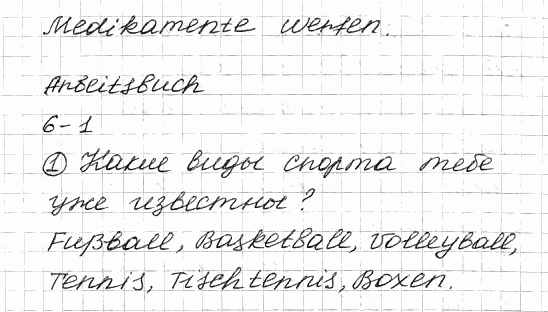 Medikamente werfen.
Arbeitsbuch
6-1
① Какие виды спорта тебе
уже известны?
Fußball, Basketball, Volleyball,
Tennis, Tischtennis, Boxen.